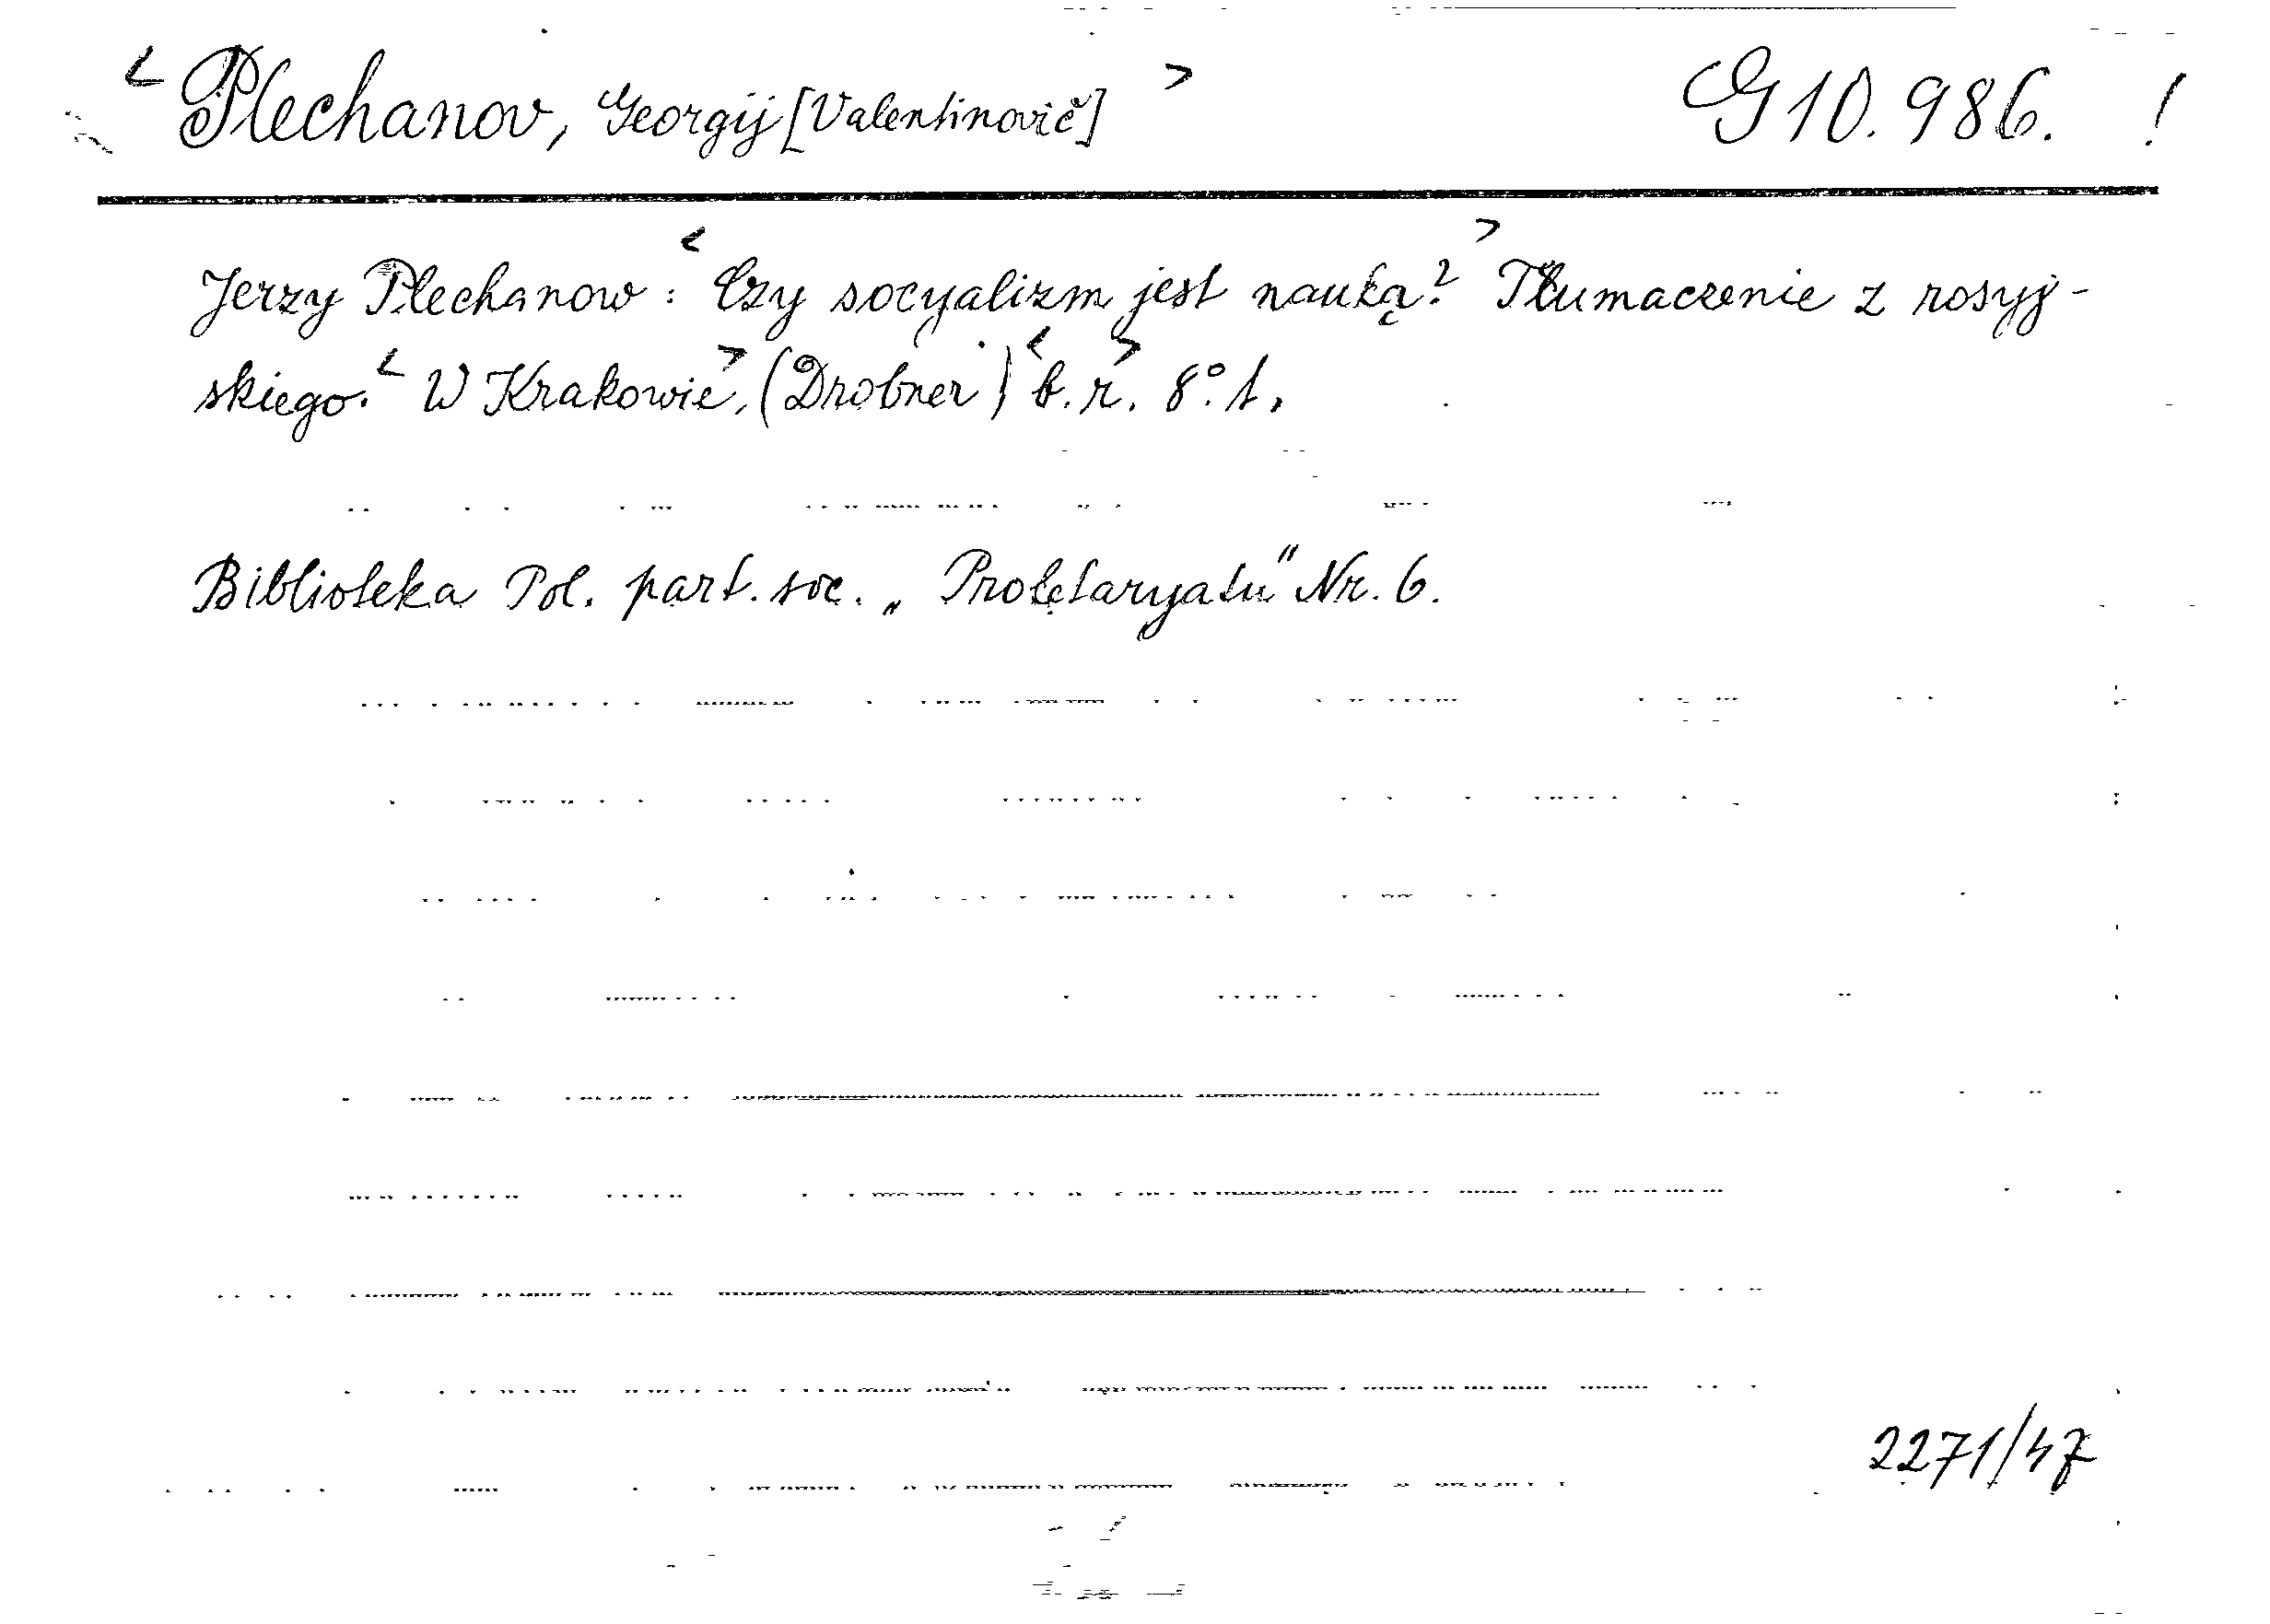 < Plechanov, Georgij [Valentinovič] > G 10.986. !
Jerzy Plechanow: < Czy socyalizm jest nauką? > Tłumaczenie z rosyj-
skiego. < W Krakowie >, (Drobner) < b. r. > 8° 1.
Biblioteka Pol. part. soc. „Proletaryatu" Nr. 6.
2271/47